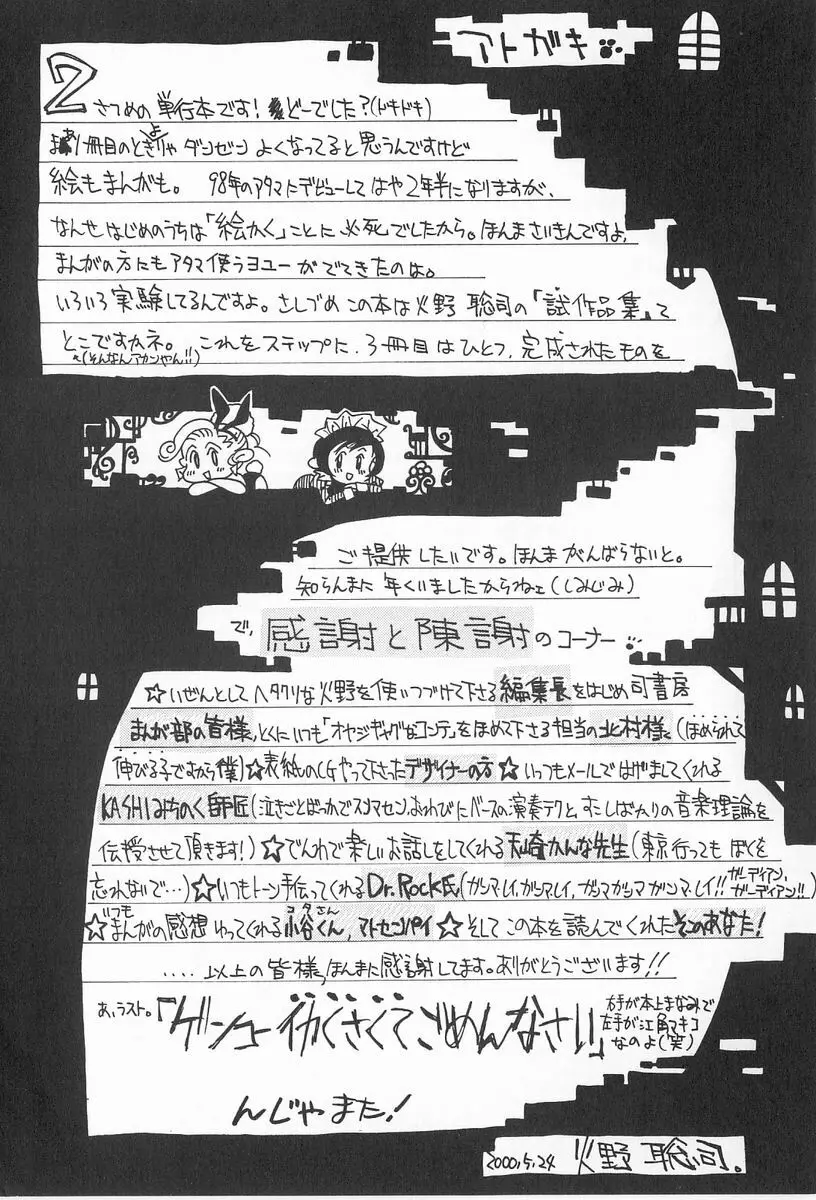 アトガキ
2さつめの単行本です! どーでした?(ドキドキ)
1冊目のときよりゃ ダンゼン よくなってると思うんですけど
絵もまんがも。 98年のアタマにデビューして はや2年半になりますが、
なんせ はじめのうちは「絵かく」ことに 必死でしたから。ほんまさいきんですよ,
まんがの方にもアタマ使うヨユーがでてきたのは。
いろいろ実験してるんですよ。さしづめこの本は火野 聡司の「試作品集」て
とこですカネ。 これをステップに、3冊目はひとつ, 完成されたものを
(そんなんアカンやん!!)
ご提供したいです。ほんま がんばらないと。
知らんまに 年くいましたからねェ(しみじみ)
で, 感謝と陳謝のコーナー
☆いぜんとしてヘタクソな火野を使いつづけて下さる編集長をはじめ司書房
まんが部の皆様, とくにいつも「オヤジギャグなコンテ」をほめて下さる担当の北村様 (ほめられて
伸びる子ですから僕)☆表紙のCGやって下さったデザイナーの方☆いっつもメールではげましてくれる
KASHIみちのく師匠(泣きごとばっかでスンマセン,おわびにベースの演奏テクと, すこしばかりの音楽理論を
伝授させて頂きます!)☆でんわで楽しいお話しをしてくれる天崎かんな先生(東京行っても ぼくを
忘れないで…)☆いつもトーン手伝ってくれるDr.Rock氏(ガンマ・レイ,ガンマレイ, ガンマガンマガンマ・レイ!! ガーディアン,ガーディアン!!)
☆いつもまんがの感想 ゆってくれる小谷くん, マトセンパイ☆そしてこの本を読んでくれたそこのあなた!
....以上の皆様,ほんまに感謝してます。ありがとうございます!!
あ,ラスト。「ゲンコーイカくさくてごめんなさい」
右手が本上まなみで
左手が江角マキコ
なのよ(笑)
んじゃまた!
2000,5,24 火野 聡司。